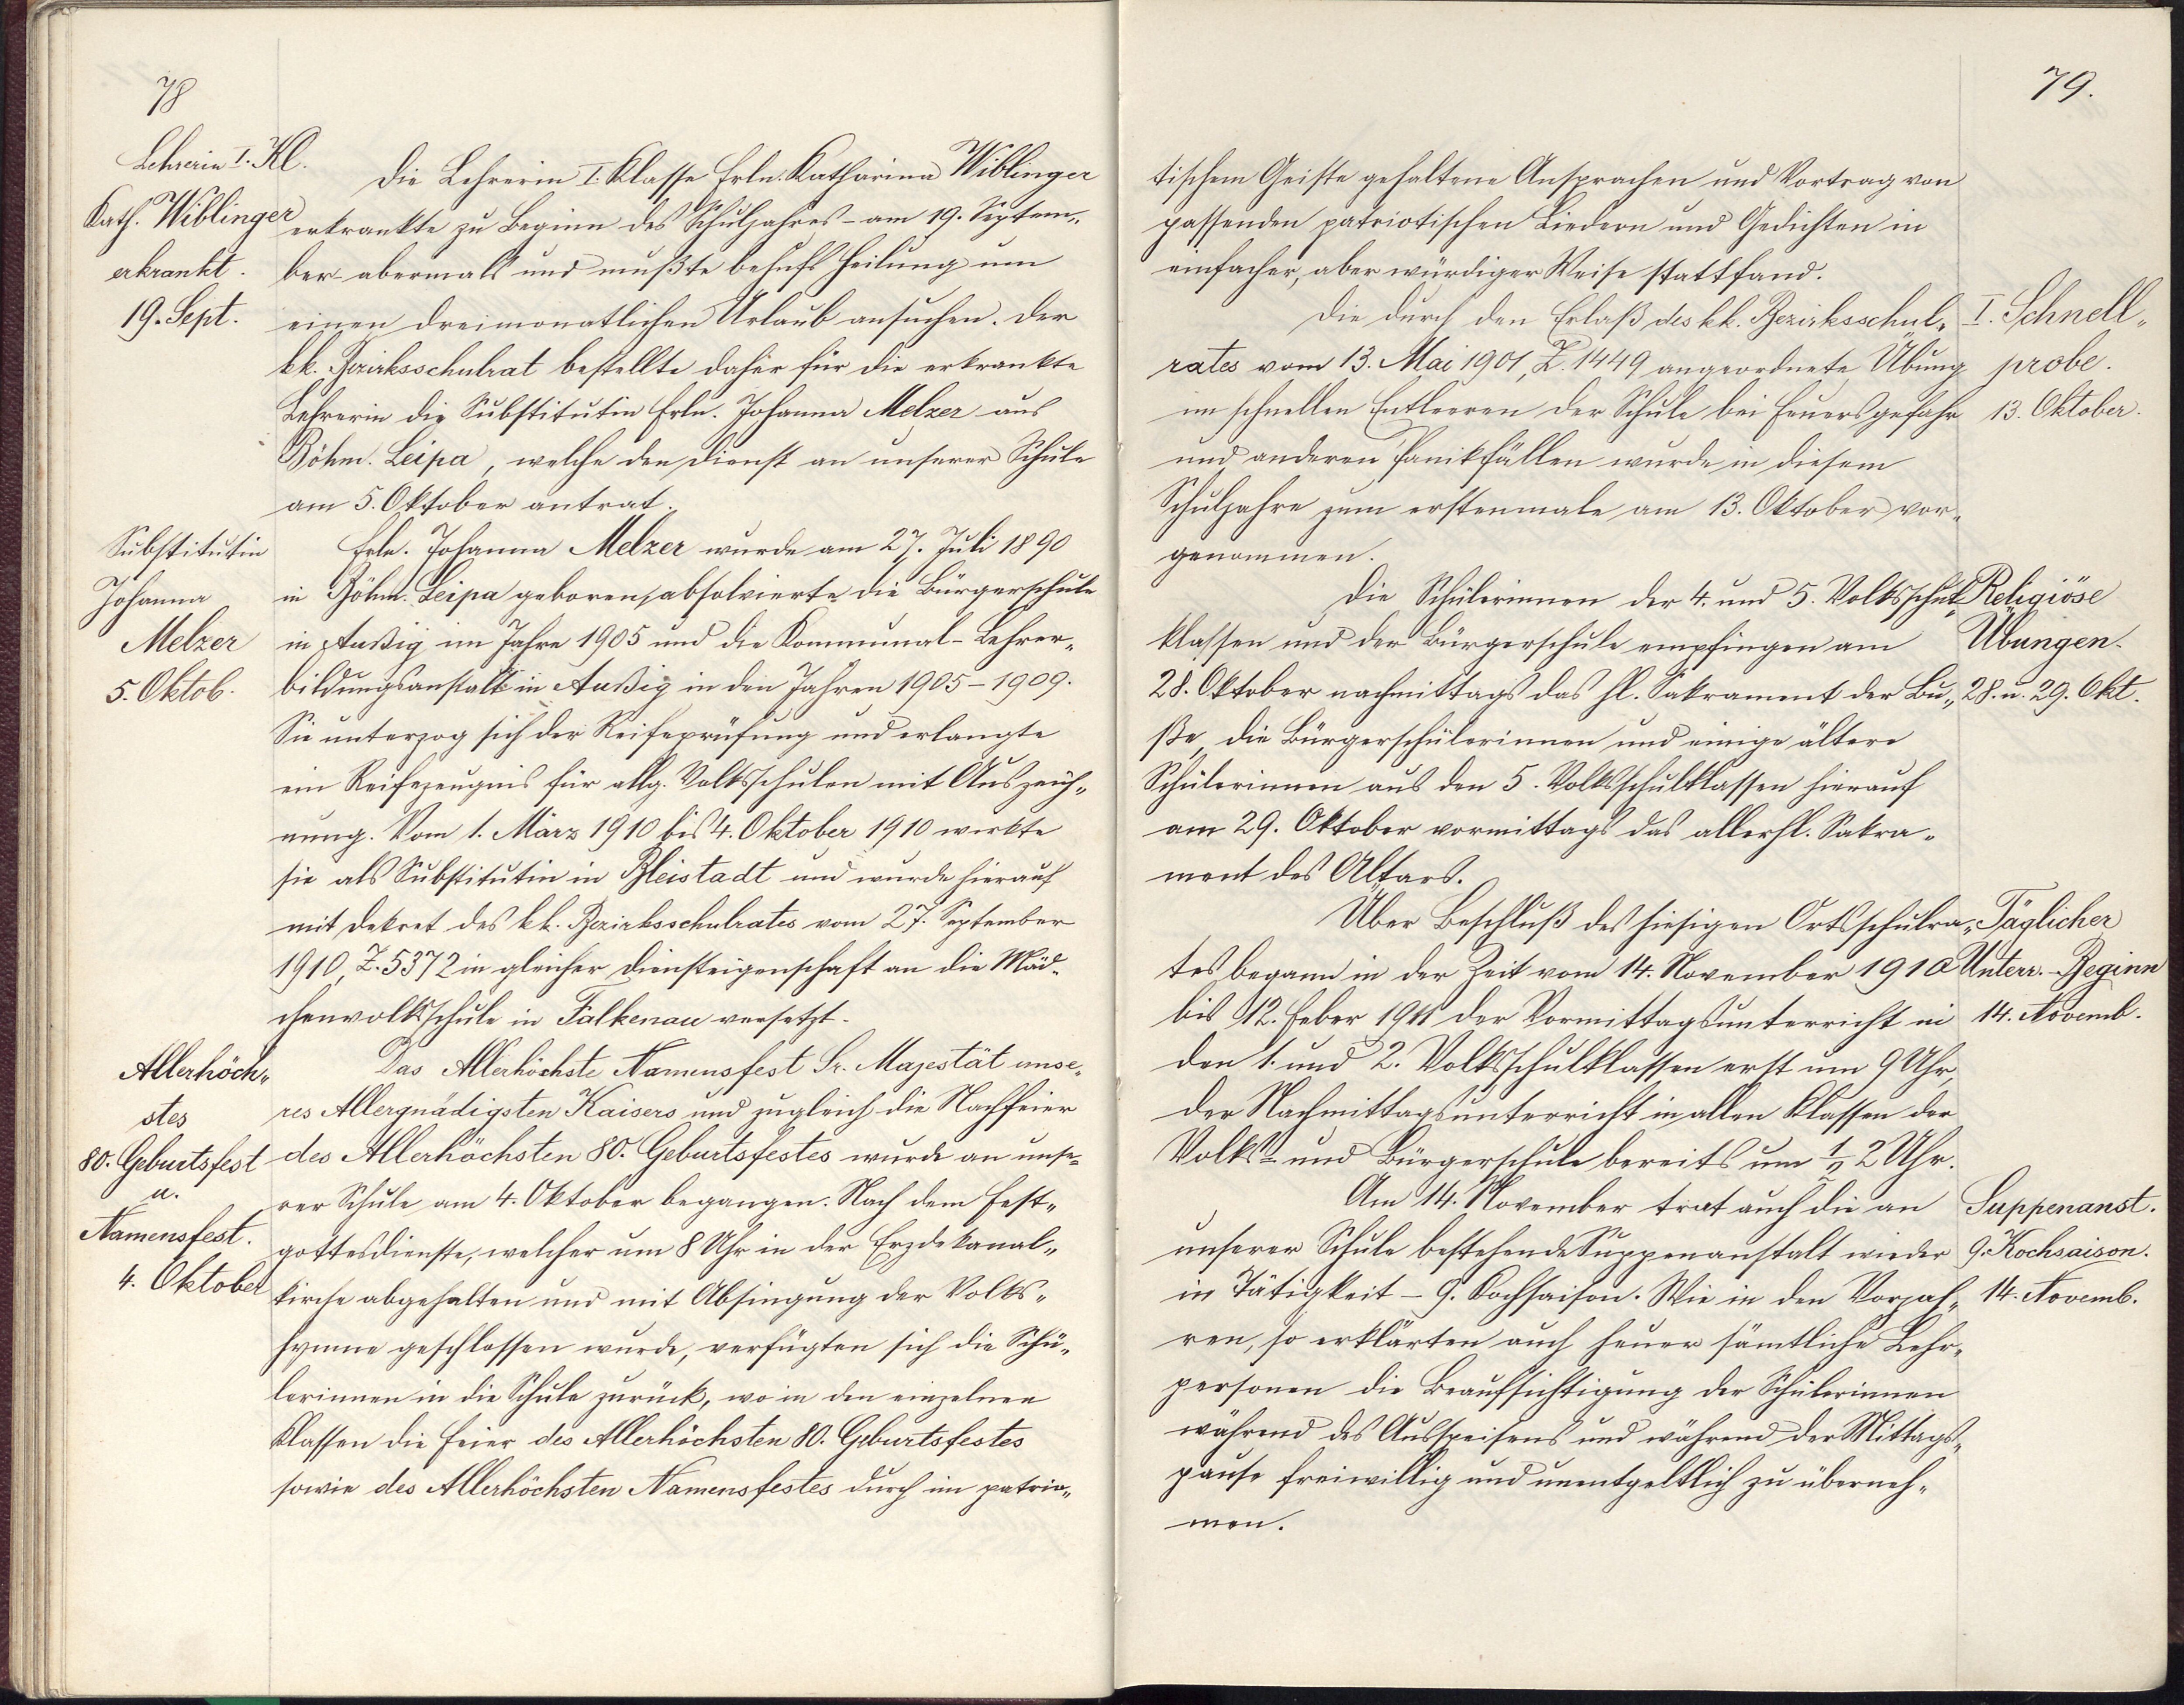 78
Lehrerin I. Kl.
Kath. Wiblinger
erkrankt.
19. Sept.
Die Lehrerin I. Klasse Frln. Katharina Wiblinger
erkrankte zu Beginn des Schuljahres – am 19. Septem„
ber abermals und mußte behufs Heilung um
einen dreimonatlichen Urlaub ansuchen. Der
kk. Bezirksschulrat bestellte daher für die erkrankte
Lehrerin die Substitutin Frln. Johanna Melzer aus
Böhm. Leipa, welche den Dienst an unserer Schule
am 5. Oktober antrat.
Substitutin
Johanna
Melzer
5. Oktob.
Frln. Johanna Melzer wurde am 27. Juli 1890
in Böhm. Leipa geboren, absolvierte die Bürgerschule
in Außig im Jahre 1905 und die Kommunal-Lehrer„
bildungsanstalt in Außig in den Jahren 1905–1909.
Sie unterzog sich der Reifeprüfung und erlangte
ein Reifezeugnis für allg. Volksschulen mit Auszeich„
nung. Vom 1. März 1910 bis 4. Oktober 1910 wirkte
sie als Substitutin in Bleistadt und wurde hierauf
mit Dekret des kk. Bezirksschulrates vom 27. September
1910, Z. 5372 in gleicher Diensteigenschaft an die Mäd„
chenvolksschule in Falkenau versetzt.
Allerhöch„
stes
80. Geburtsfest
u.
Namensfest.
4. Oktober
Das Allerhöchste Namensfest Sr. Majestät unse„
res Allergnädigsten Kaisers und zugleich die Nachfeier
des Allerhöchsten 80. Geburtsfestes wurde an unse„
rer Schule am 4. Oktober begangen. Nach dem Fest„
gottesdienste, welcher um 8 Uhr in der Erzdekanal„
kirche abgehalten und mit Absingung der Volks„
hymne geschlossen wurde, verfügten sich die Schü„
lerinnen in die Schule zurück, wo in den einzelnen
Klassen die Feier des Allerhöchsten 80. Geburtsfestes
sowie des Allerhöchsten Namensfestes durch im patrio„
79.
tischem Geiste gehaltene Ansprachen und Vortrag von
passenden patriotischen Liedern und Gedichten in
einfacher, aber würdiger Weise stattfand.
Die durch den Erlaß des kk. Bezirksschul„
rates vom 13. Mai 1901, Z. 1449 angeordnete Übung
im schnellen Entleeren der Schule bei Feuersgefahr
und anderen Panikfällen wurde in diesem
Schuljahre zum erstenmale am 13. Oktober vor„
genommen.
I. Schnell„
probe.
13. Oktober.
Die Schülerinnen der 4. und 5. Volksschul„
klassen und der Bürgerschule empfingen am
28. Oktober nachmittags das hl. Sakrament der Bu„
ße, die Bürgerschülerinnen und einige ältere
Schülerinnen aus den 5. Volksschulklassen hierauf
am 29. Oktober vormittags das allerhl. Sakra„
ment des Altars.
Religiöse
Übungen.
28. u. 29. Okt.
Über Beschluß des hiesigen Ortsschulra„
tes begann in der Zeit vom 14. November 1910
bis 12. Feber 1911 der Vormittagsunterricht in
den 1. und 2. Volksschulklassen erst um 9 Uhr,
der Nachmittagsunterricht in allen Klassen der
Volks- und Bürgerschule bereits um ½ 2 Uhr.
Täglicher
Unterr.-Beginn
14. Novemb.
Am 14. November trat auch die an
unserer Schule bestehende Suppenanstalt wieder
in Tätigkeit – 9. Kochsaison. Wie in den Vorjah„
ren, so erklärten auch heuer sämtliche Lehr„
personen die Beaufsichtigung der Schülerinnen
während des Ausspeisens und während der Mittags„
pause freiwillig und unentgeltlich zu überneh„
men.
Suppenanst.
9. Kochsaison.
14. Novemb.